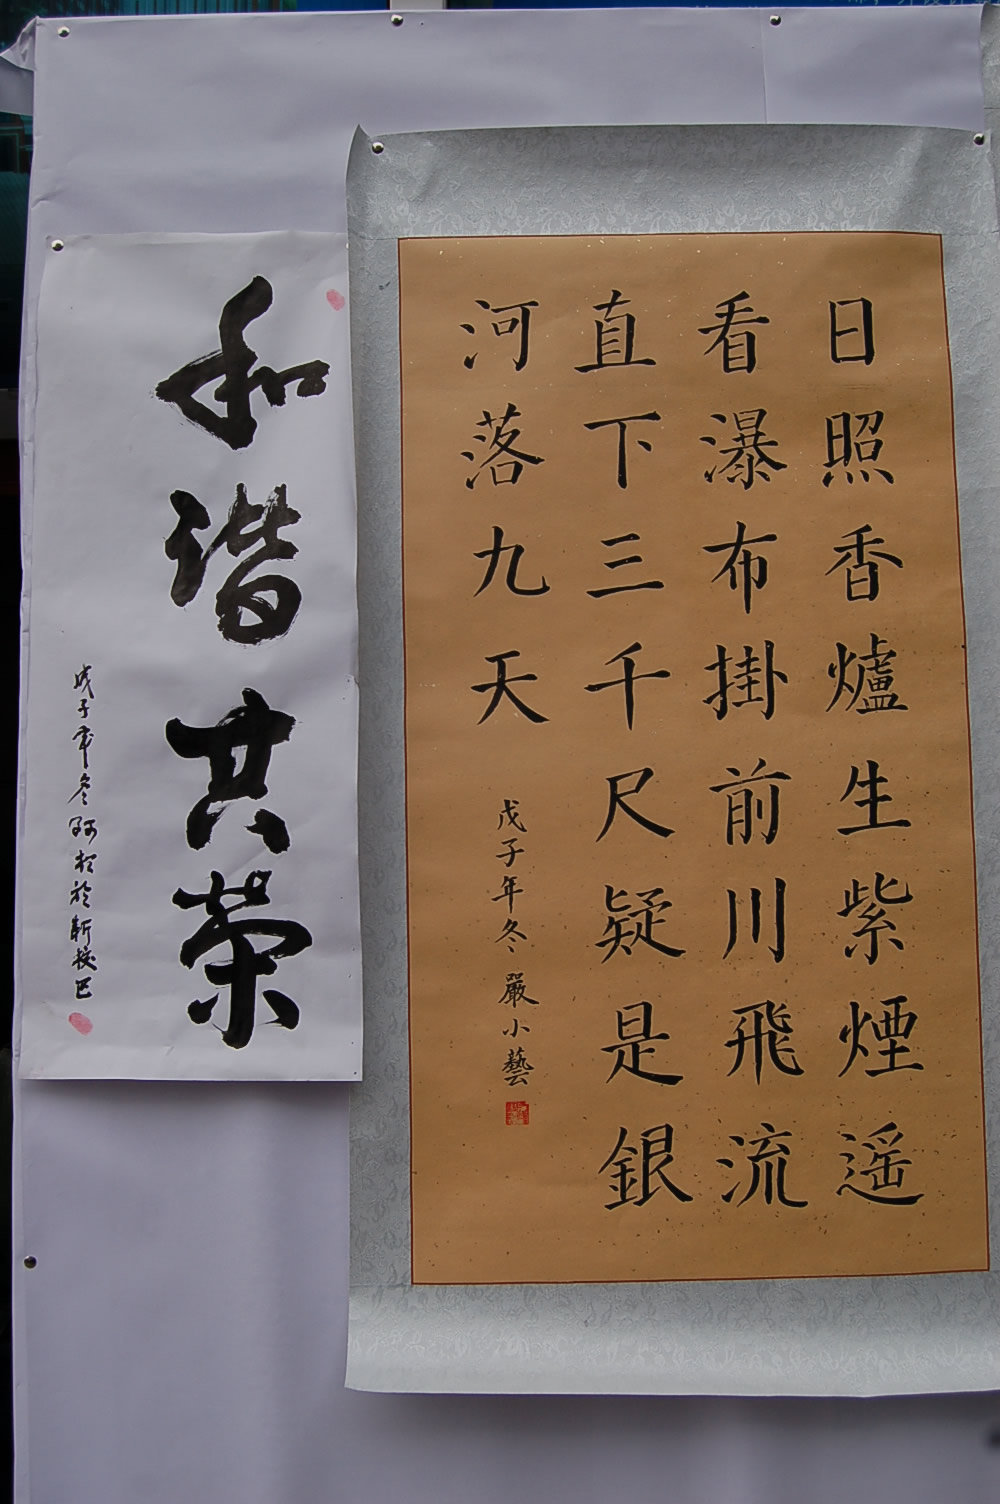 日照香爐生紫煙遥
看瀑布掛前川飛流
直下三千尺疑是銀
河落九天
戊子年冬嚴小藝
和谐共荣
戊子年冬
於新校